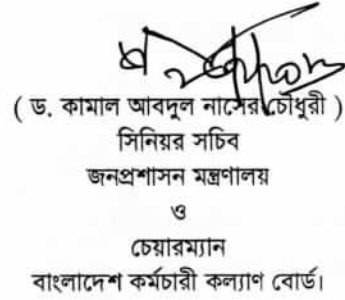 ( ড. কামাল আবদুল নাসের চৌধুরী )
সিনিয়র সচিব
জনপ্রশাসন মন্ত্রণালয়
ও
চেয়ারম্যান
বাংলাদেশ কর্মচারী কল্যাণ বোর্ড।